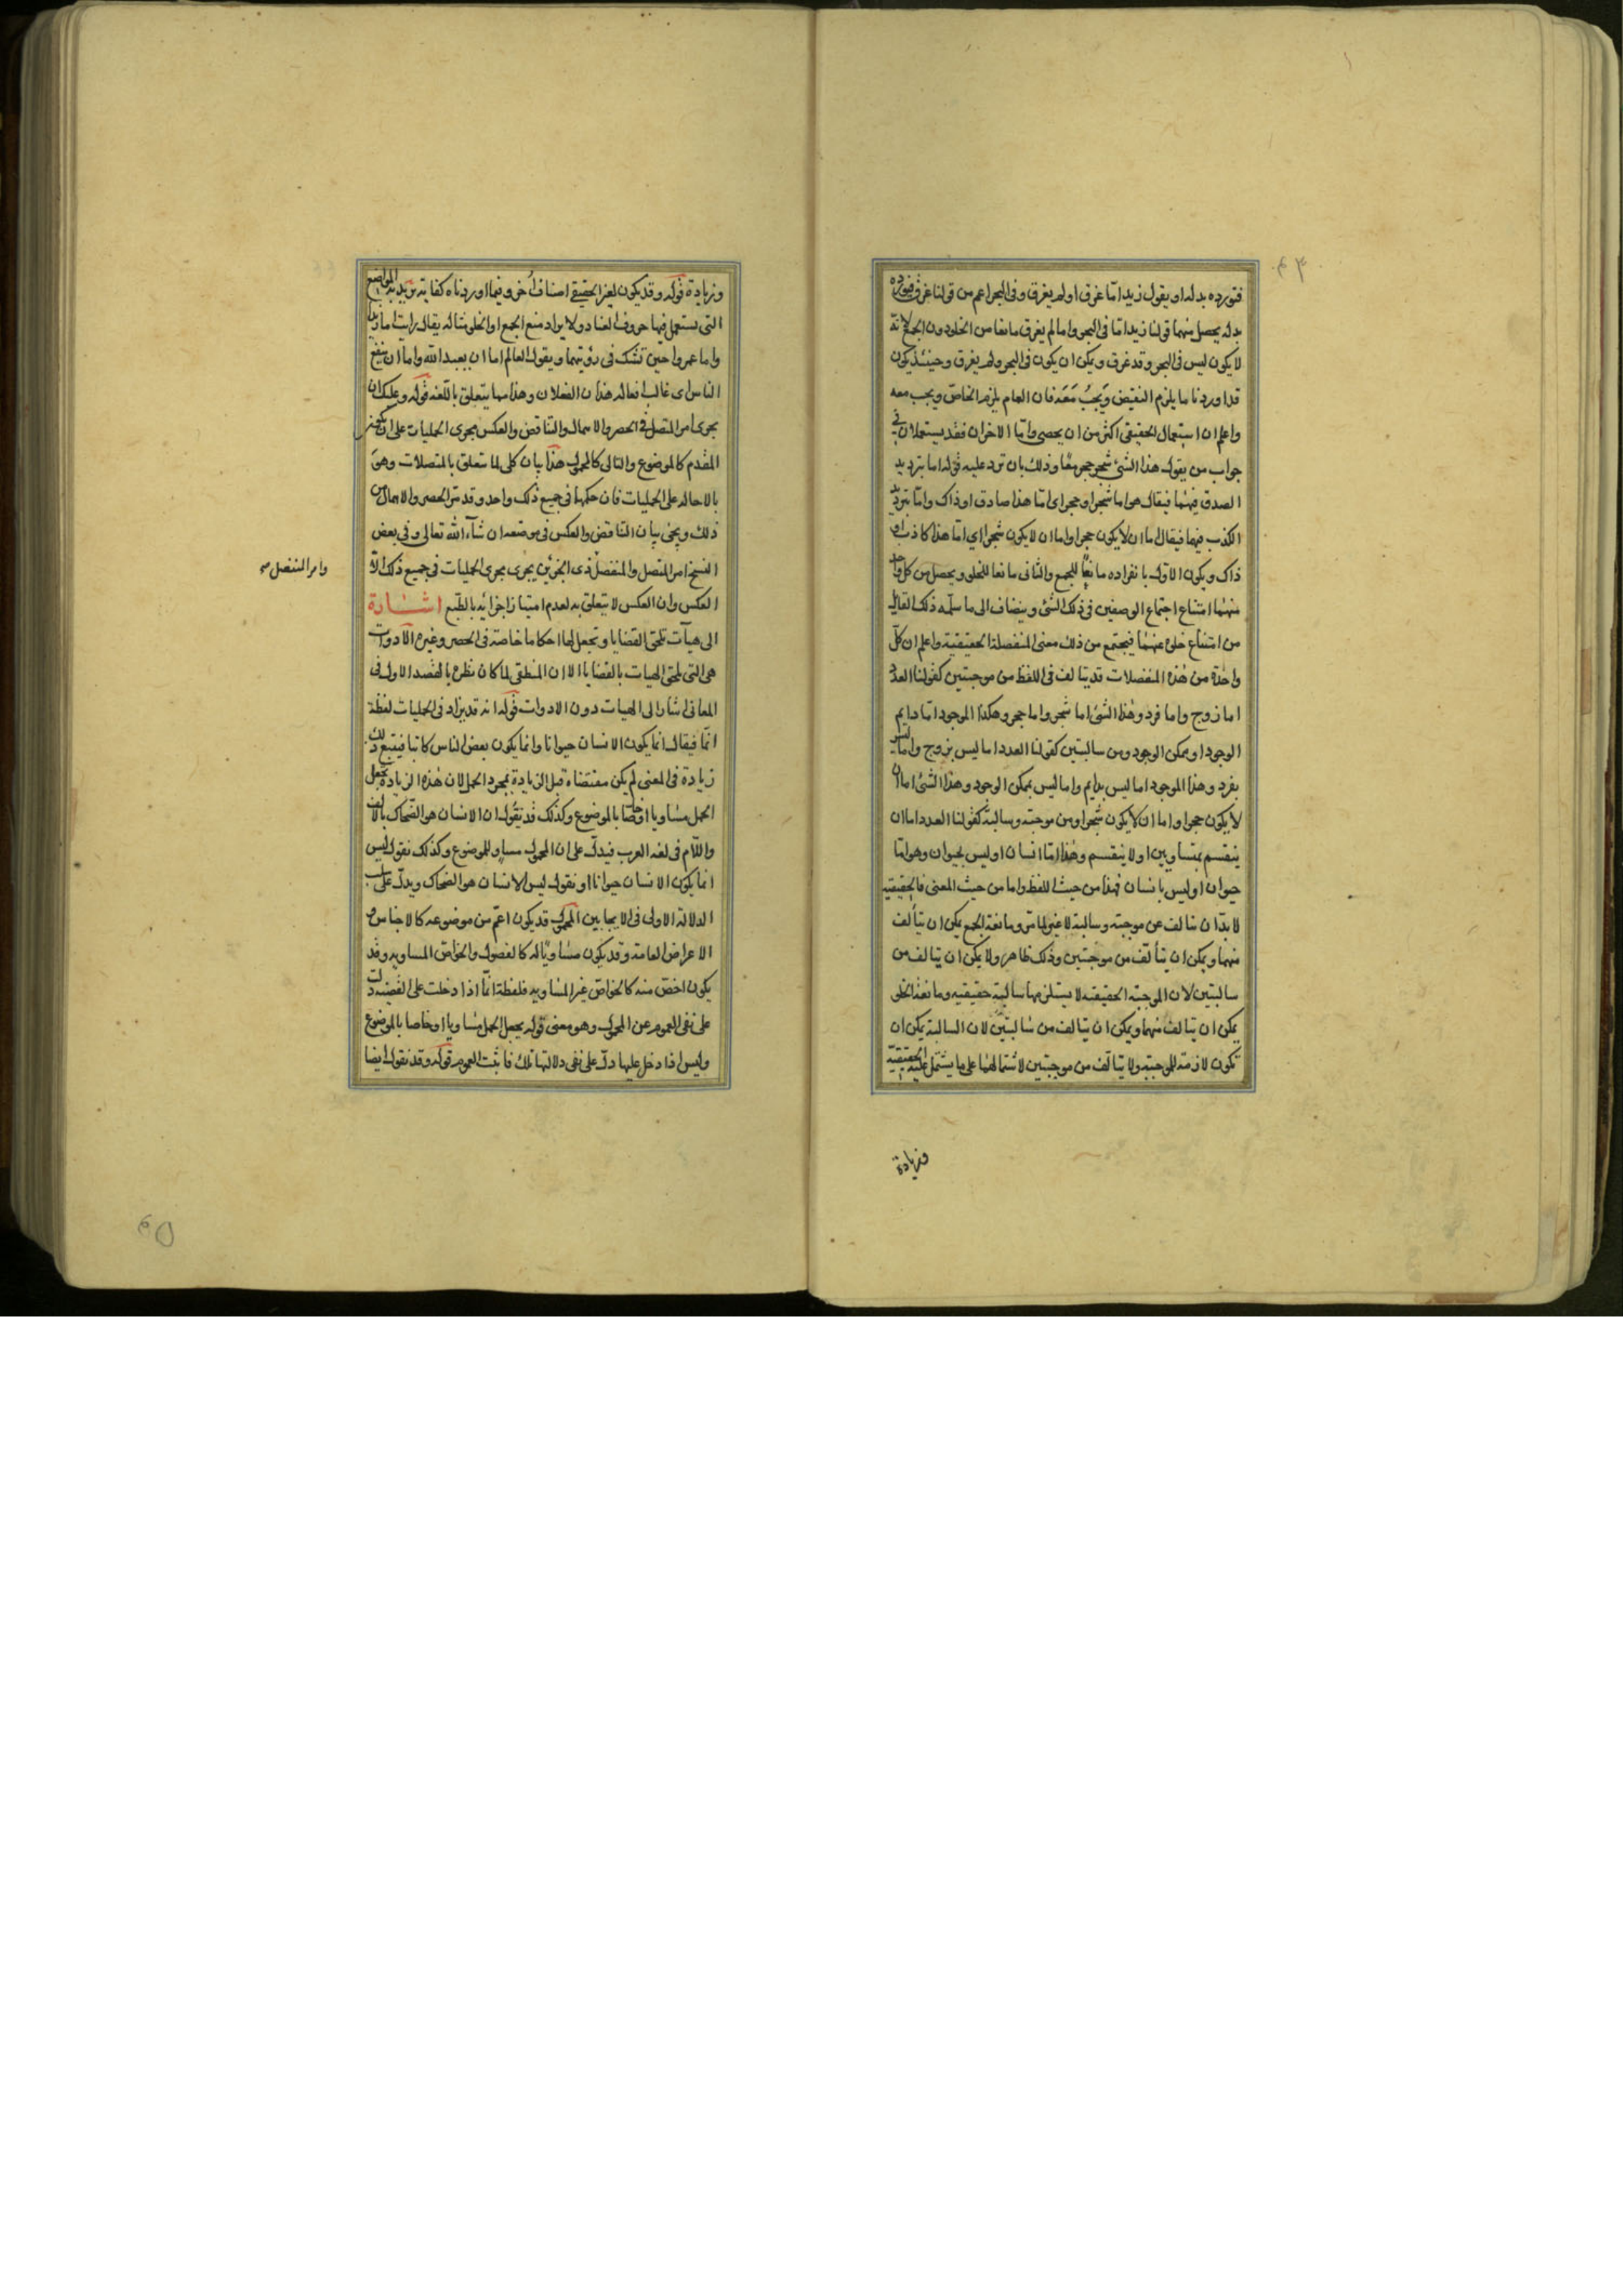 فنورده بدله او يقول زيد اما غرق او لم يغرق وفى البحر اعم من قولنا غرق فنورده
بدله يحصل منهما قولنا زيد اما فى البحر واما لم يغرق مانعا من الخلو دون الجمع لانه
لا يكون ليس فى البحر وقد غرق ويمكن ان يكون فى البحر ولم يغرق وحينئذ يكون
قد اوردنا ما يلزم النقيض ويجب معه فان العام يلزم الخاص ويجب معه
واعلم ان استعمال الحقيقى اكثر من ان يحصى واما الاخران فقد يستعملان فى
جواب من يقول هذا الشئ شجر حجر معا وذلك بان ترد عليه قوله اما بترديد
الصدق فيهما فيقال هو اما شجر او حجر اى اما هذا صادق او ذاك واما بترديد
الكذب فيهما فيقال اما ان لا يكون حجرا واما ان لا يكون شجرا اى اما هذا كاذب او
ذاك ويكون الاول بانفراده مانعا للجمع والثانى مانعا للخلو ويحصل من كل واحد
منهما امتناع اجتماع الوصفين فى ذلك الشئ وينضاف الى ما سلمه ذلك القائل
من امتناع خلوه عنهما فيجتمع من ذلك معنى المنفصلة الحقيقية واعلم ان كل
واحدة من هذه المنفصلات قد يتالف فى اللفظ من موجبتين كقولنا العدد
اما زوج واما فرد وهذا الشئ اما شجر واما حجر وهكذا الموجود اما دايم
الوجود او ممكن الوجود ومن سالبتين كقولنا العدد اما ليس بزوج واما ليس
بفرد وهذا الموجود اما ليس بدايم واما ليس بممكن الوجود وهذا الشئ اما ان
لا يكون حجرا واما ان لا يكون شجرا ومن موجبة وسالبة كقولنا العدد اما ان
ينقسم بمتساويين او لا ينقسم وهذا اما انسان او ليس بحيوان وهو اما
حيوان او ليس بانسان فهذا من حيث اللفظ واما من حيث المعنى فالحقيقية
لا بد ان تتالف عن موجبة وسالبة لا غير لما مر ومانعة الجمع يمكن ان يتألف
منهما ويمكن ان يتألف من موجبتين وذلك ظاهر ولا يمكن ان يتالف من
سالبتين لان الموجبة الحقيقية لا يستلزمها سالبة حقيقيه ومانعة الخلو
يمكن ان يتالف منهما ويمكن ان يتالف من سالبتين لان السالبة يمكن ان
تكون لازمة للموجبة ولا يتالف من موجبتين لاشتمالهما على ما يشتمل عليه الحقيقية
وزيادة
وزيادة قوله وقد يكون لغير الحقيقى اصناف أخر وفيما اوردناه كفاية يريد به المواضع
التى يستعمل فيها حروف العناد ولا يراد منع الجمع او الخلو مثاله يقال رايت اما زيدا
واما عمروا حين تشك فى رؤيتهما ويقول العالم اما ان يعبد الله واما ان ينفع
الناس اى غالب افعاله هذان الفعلان وهذا مما يتعلق باللغه قوله وعليك ان
يجرى امر المتصل فى الحصر والاهمال والتناقض والعكس مجرى الحمليات على ان يكون
المقدم كالموضوع والتالى كالمحمول هذا بيان كلى لما تتعلق بالمتصلات وهو
بالاحاله على الحمليات فان حكمها فى جميع ذلك واحد وقد مر الحصر والاهمال من
ذلك ويجئ بيان التناقض والعكس فى موضعه ان شاء الله تعالى وفى بعض
النسخ امر المتصل والمنفصل ذى الجزئين يجرى مجرى الحمليات فى جميع ذلك الا
وامر المنفصل
العكس وان العكس لا يتعلق به لعدم امتياز اجزائه بالطبع اشارة
الى هيآت تلحق القضايا وتجعل لها احكاما خاصة فى الحصر وغيره الادوات
هى التى تلحق الهيات بالقضايا الا ان المنطقى لما كان نظره بالقصد الاول فى
المعانى اشار الى الهيات دون الادوات قوله انه قد يزاد فى الحمليات لفظة
انما فيقال انما يكون الانسان حيوانا وانما يكون بعض الناس كاتبا فيتبع ذلك
زيادة فى المعنى لم يكن مقتضاه قبل الزيادة بمجرد الحمل لان هذه الزيادة تجعل
الحمل مساويا او خاصا بالموضوع وكذلك قد تقول ان الانسان هو الضحاك بالالف
واللام فى لغة العرب فيدل على ان المحمول مساو للموضوع وكذلك نقول ليس
انما يكون الانسان حيوانا او نقول ليس الانسان هو الضحاك ويدل على سلب
الدلالة الاولى فى الايجابين المحمول قد يكون اعم من موضوعه كالاجناس و
الاعراض العامة وقد يكون مساويا له كالفصول والخواص المساوية وقد
يكون اخص منه كالخواص غير المساويه فلفظة انما اذا دخلت على القضية دلت
على نفى العموم عن المحمول وهو معنى قوله يجعل الحمل مساويا او خاصا بالموضوع
وليس اذا دخل عليها دل على نفى دلالتها تلك فاثبت العموم قوله وقد نقول ايضا